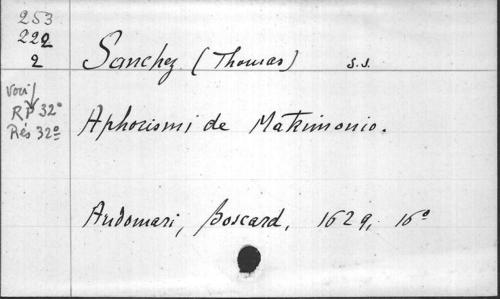 253
222
2
Sanchez (Thomas) S.J.
voir
RP 32°
Rés 32°
Aphorismi de Matrimonio.
Audomari, Boscard, 1629, 16°